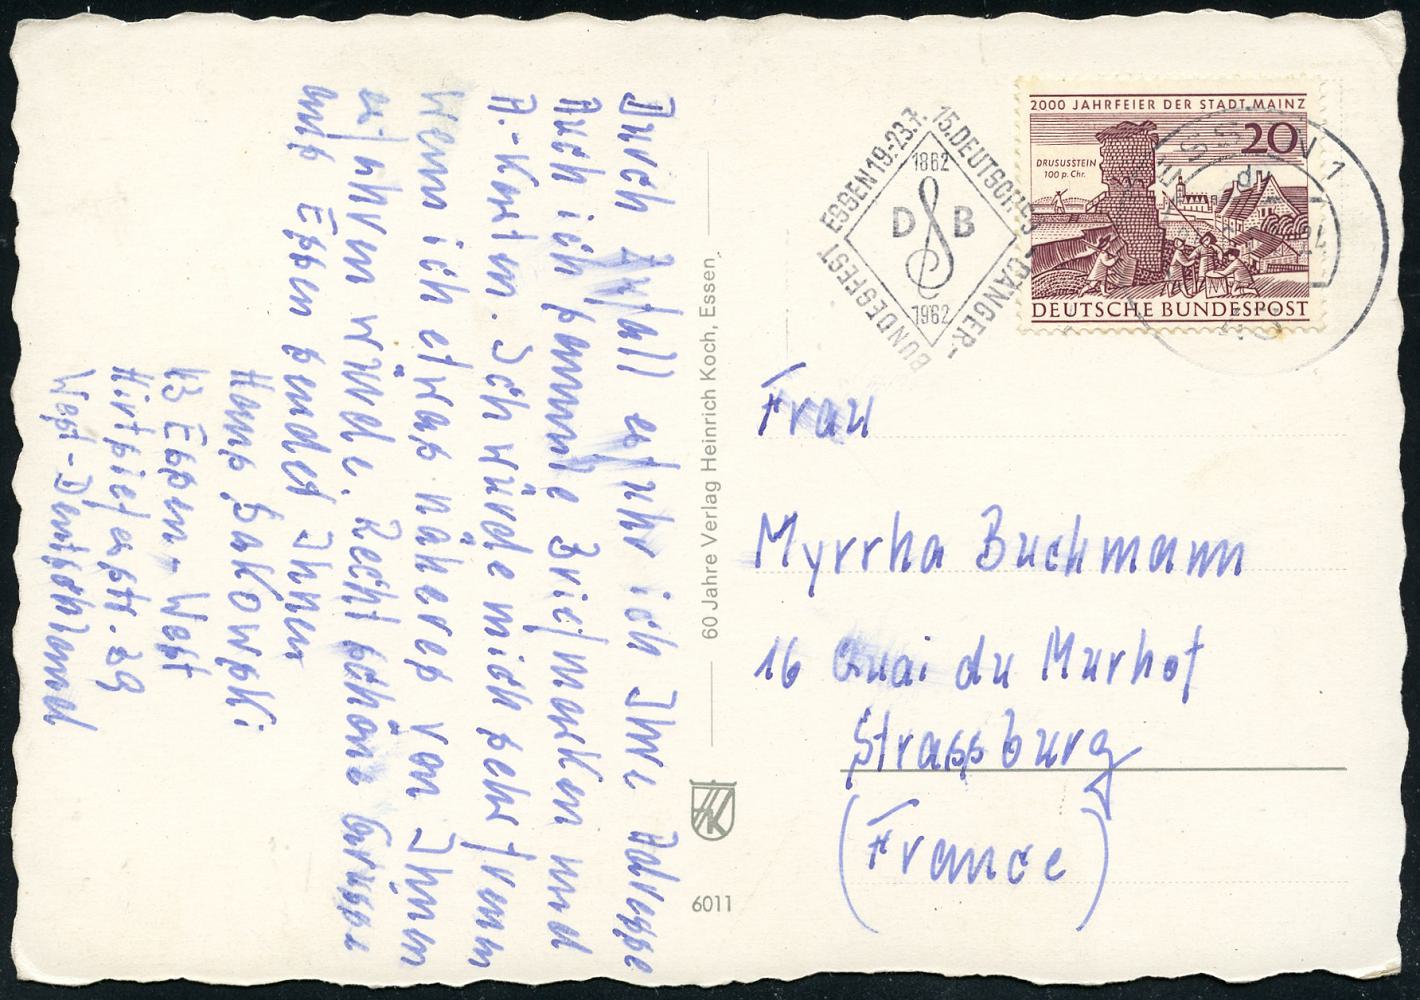 Durch Zufall erfuhr ich Ihre Adresse
Auch ich sammle Briefmarken und
A.-Karten. Ich würde mich sehr freuen
Wenn ich etwas näheres von Ihnen
erfahren würde. Recht schöne Grüsse
aus Essen sendet Ihnen
Hans Sakowski
43 Essen-West
Hirtsieferstr. 39
West-Deutschland
60 Jahre Verlag Heinrich Koch, Essen
6011
15. DEUTSCHES SÄNGER-
BUNDESFEST ESSEN 19-23.7.
1862
D B
1962
2000 JAHRFEIER DER STADT MAINZ
20
DRUSUSSTEIN
100 p. Chr.
DEUTSCHE BUNDESPOST
Frau
Myrrha Buchmann
16 Quai du Murhof
Strassburg
(France)